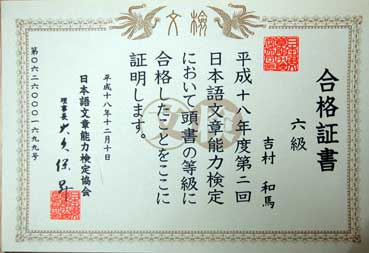 文検
合格証書
六級
吉村 和馬
平成十八年度第二回
日本語文章能力検定
において頭書の等級に
合格したことをここに
証明します。
平成十八年十二月十日
日本語文章能力検定協会
理事長 大久保昇
第０６２６０００１６９９号